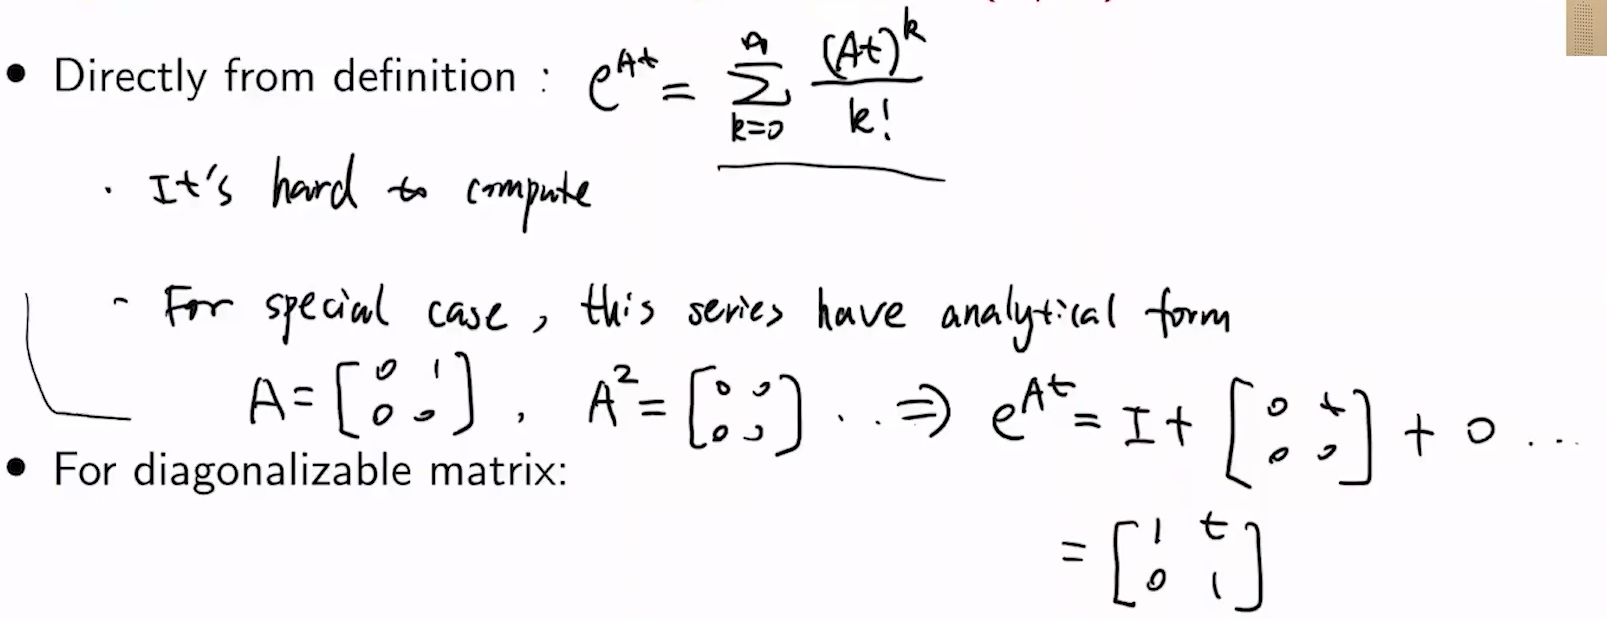 • Directly from definition : e^{At} = \sum_{k=0}^{∞} \frac{(At)^k}{k!}
· It's hard to compute
- For special case, this series have analytical form
A = [0 1; 0 0], A^2 = [0 0; 0 0] ... ⇒ e^{At} = I + [0 t; 0 0] + 0 ...
• For diagonalizable matrix:
= [1 t; 0 1]